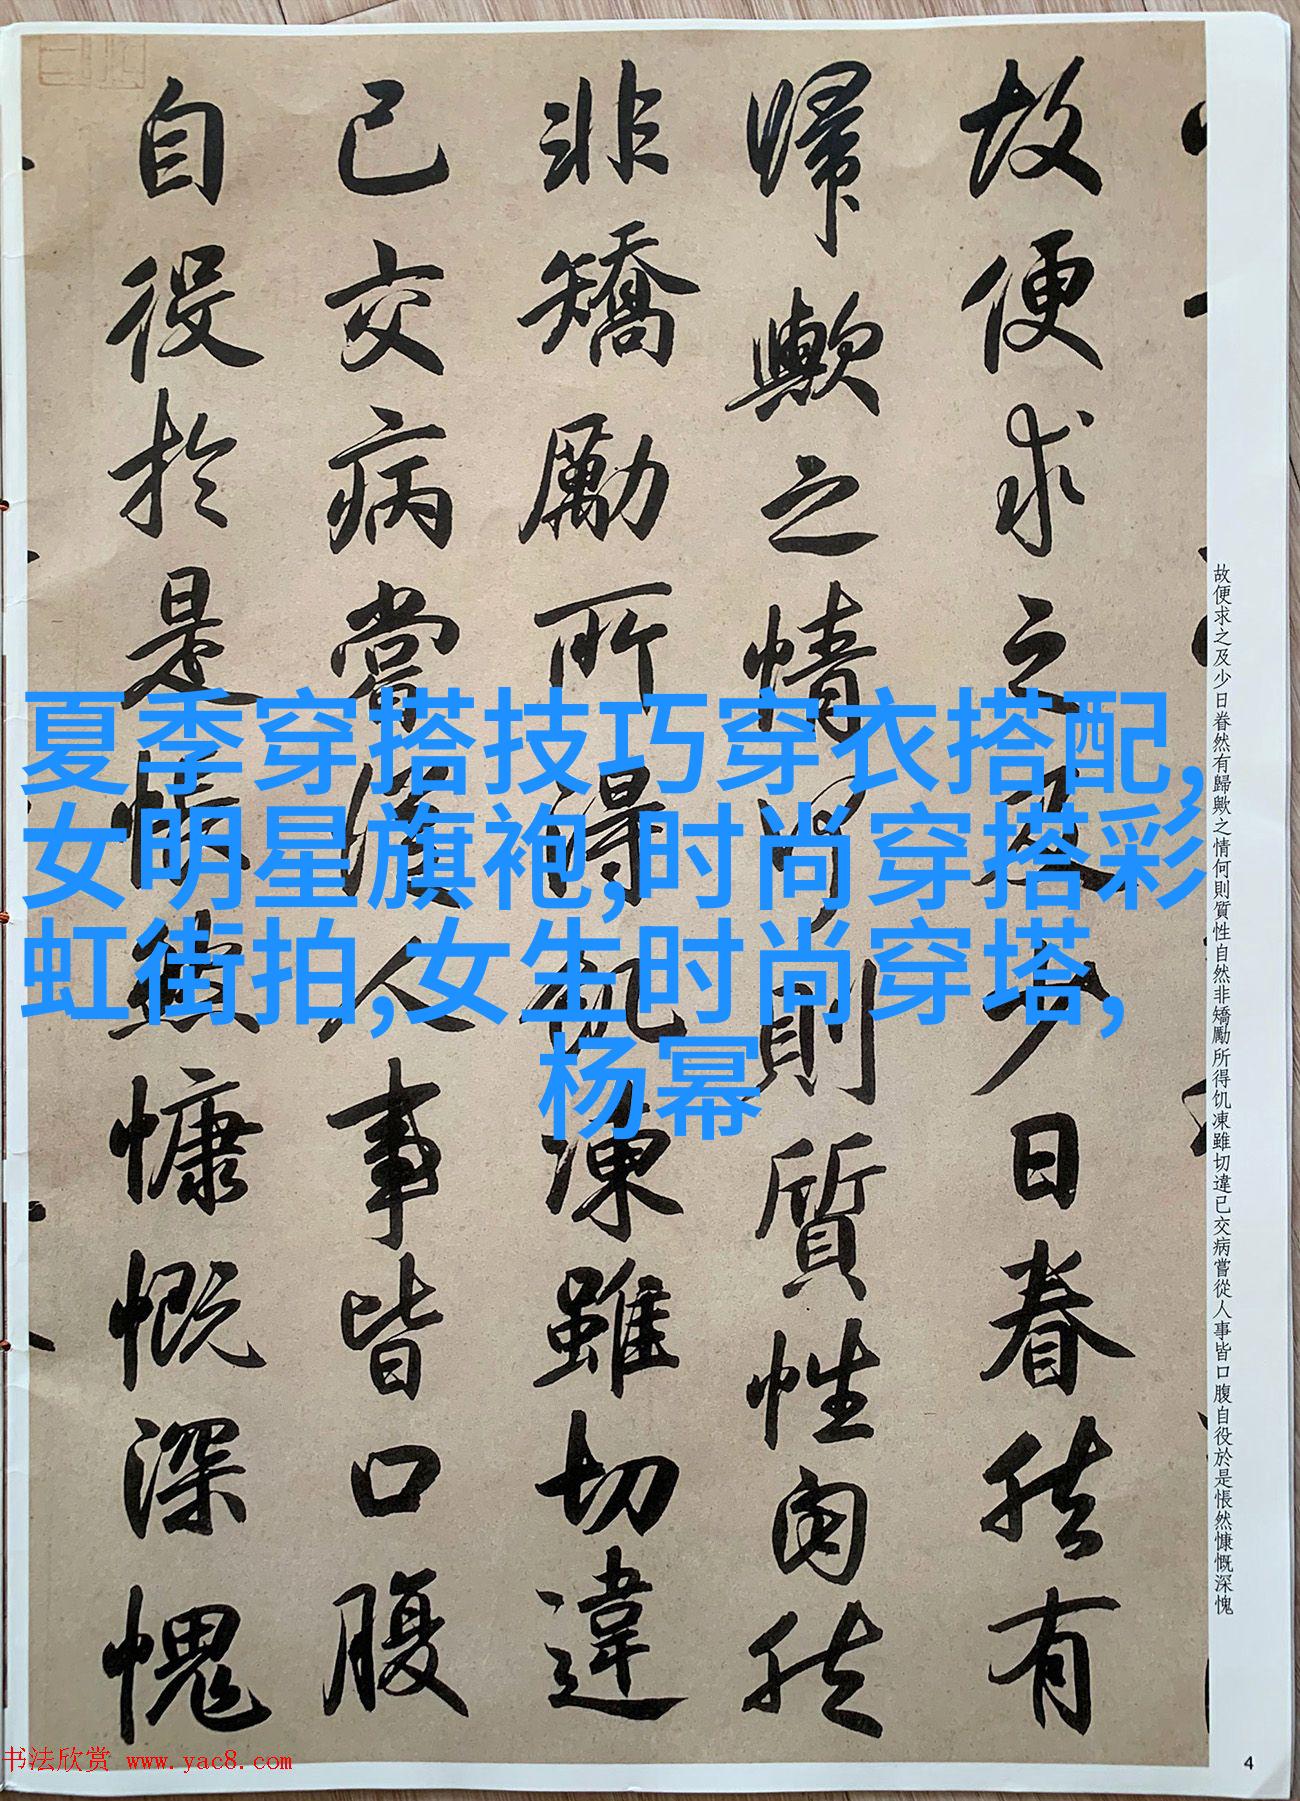 故便求之及少日眷然有
歸歟之情何則質性自然
非矯勵所得飢凍雖切違
已交病嘗從人事皆口腹
自役於是悵然慷慨深愧
夏季穿搭技巧穿衣搭配,
女明星旗袍,时尚穿搭彩
虹街拍,女生时尚穿塔,
杨幂
故便求之及少日眷然有歸歟之情何則質性自然非矯勵所得饥凍雖切違已交病嘗從人事皆口腹自役於是悵然慷慨深愧
书法欣赏 www.yac8.com
4